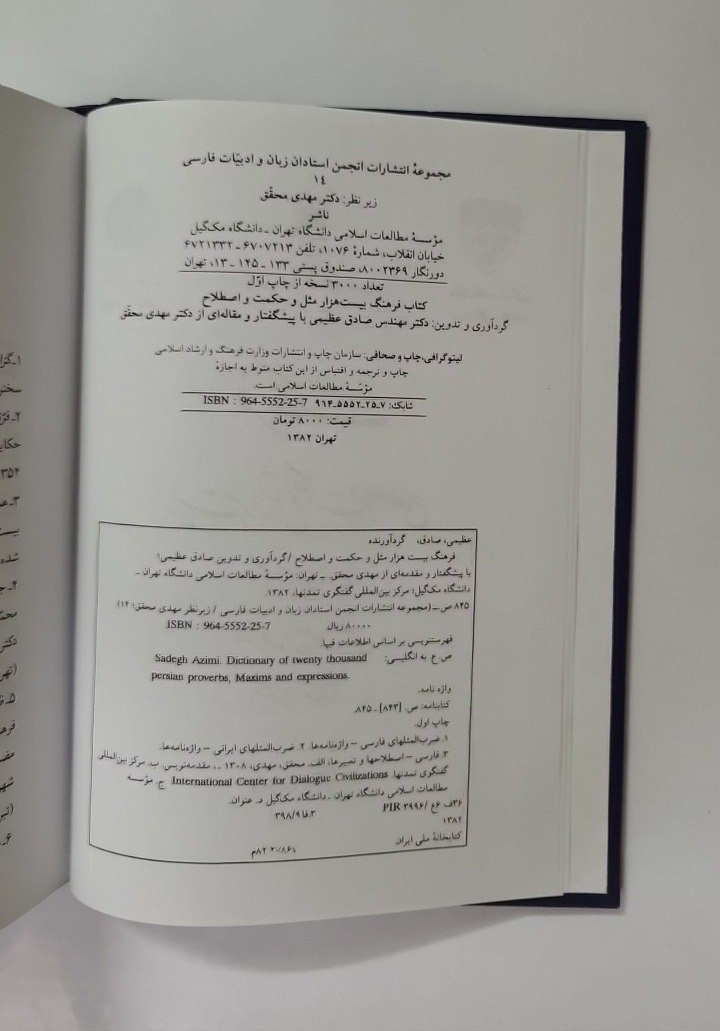 مجموعهٔ انتشارات انجمن استادان زبان و ادبیّات فارسی
۱۴
زیر نظر: دکتر مهدی محقّق
ناشر
مؤسسهٔ مطالعات اسلامی دانشگاه تهران ـ دانشگاه مک‌گیل
خیابان انقلاب، شمارهٔ ۱۰۷۶، تلفن ۶۷۰۷۲۱۳ ـ ۶۷۲۱۳۳۲
دورنگار ۸۰۰۲۳۶۹، صندوق پستی ۱۳۳ ـ ۱۴۵ ـ ۱۳، تهران
تعداد ۳۰۰۰ نسخه از چاپ اوّل
کتاب فرهنگ بیست‌هزار مثل و حکمت و اصطلاح
گردآوری و تدوین: دکتر مهندس صادق عظیمی با پیشگفتار و مقاله‌ای از دکتر مهدی محقّق
لیتوگرافی، چاپ و صحافی: سازمان چاپ و انتشارات وزارت فرهنگ و ارشاد اسلامی
چاپ و ترجمه و اقتباس از این کتاب منوط به اجازهٔ
مؤسّسهٔ مطالعات اسلامی است.
شابک: ۷ـ۲۵ـ۵۵۵۲ـ۹۶۴ ISBN : 964-5552-25-7
قیمت: ۸۰۰۰ تومان
تهران ۱۳۸۲
عظیمی، صادق، گردآورنده
فرهنگ بیست هزار مثل و حکمت و اصطلاح / گردآوری و تدوین صادق عظیمی؛
با پیشگفتار و مقدمه‌ای از مهدی محقق. ـ تهران: مؤسسهٔ مطالعات اسلامی دانشگاه تهران ـ
دانشگاه مک‌گیل؛ مرکز بین‌المللی گفتگوی تمدنها، ۱۳۸۲.
۸۴۵ ص. ـ (مجموعه انتشارات انجمن استادان زبان و ادبیات فارسی / زیرنظر مهدی محقق؛ ۱۴)
۸۰۰۰۰ ریال ISBN : 964-5552-25-7
فهرستنویسی بر اساس اطلاعات فیپا.
ص ع به انگلیسی: Sadegh Azimi. Dictionary of twenty thousand
persian proverbs, Maxims and expressions.
واژه نامه.
کتابنامه: ص. [۸۴۳] ـ ۸۴۵.
چاپ اول.
۱. ضرب‌المثلهای فارسی – واژه‌نامه‌ها. ۲. ضرب‌المثلهای ایرانی – واژه‌نامه‌ها.
۳. فارسی – اصطلاحها و تعبیرها. الف. محقق، مهدی، ۱۳۰۸ ـ ، مقدمه‌نویس. ب. مرکز بین‌المللی
گفتگوی تمدنها. International Center for Dialogue Civilizations ج. مؤسسه
مطالعات اسلامی دانشگاه تهران ـ دانشگاه مک‌گیل د. عنوان.
۳۶ف ۶ع / PIR ۳۹۹۶ ۳۹۸/۹فا۳
۱۳۸۲
کتابخانهٔ ملی ایران
۲۰۸۶۱ـ۸۲م